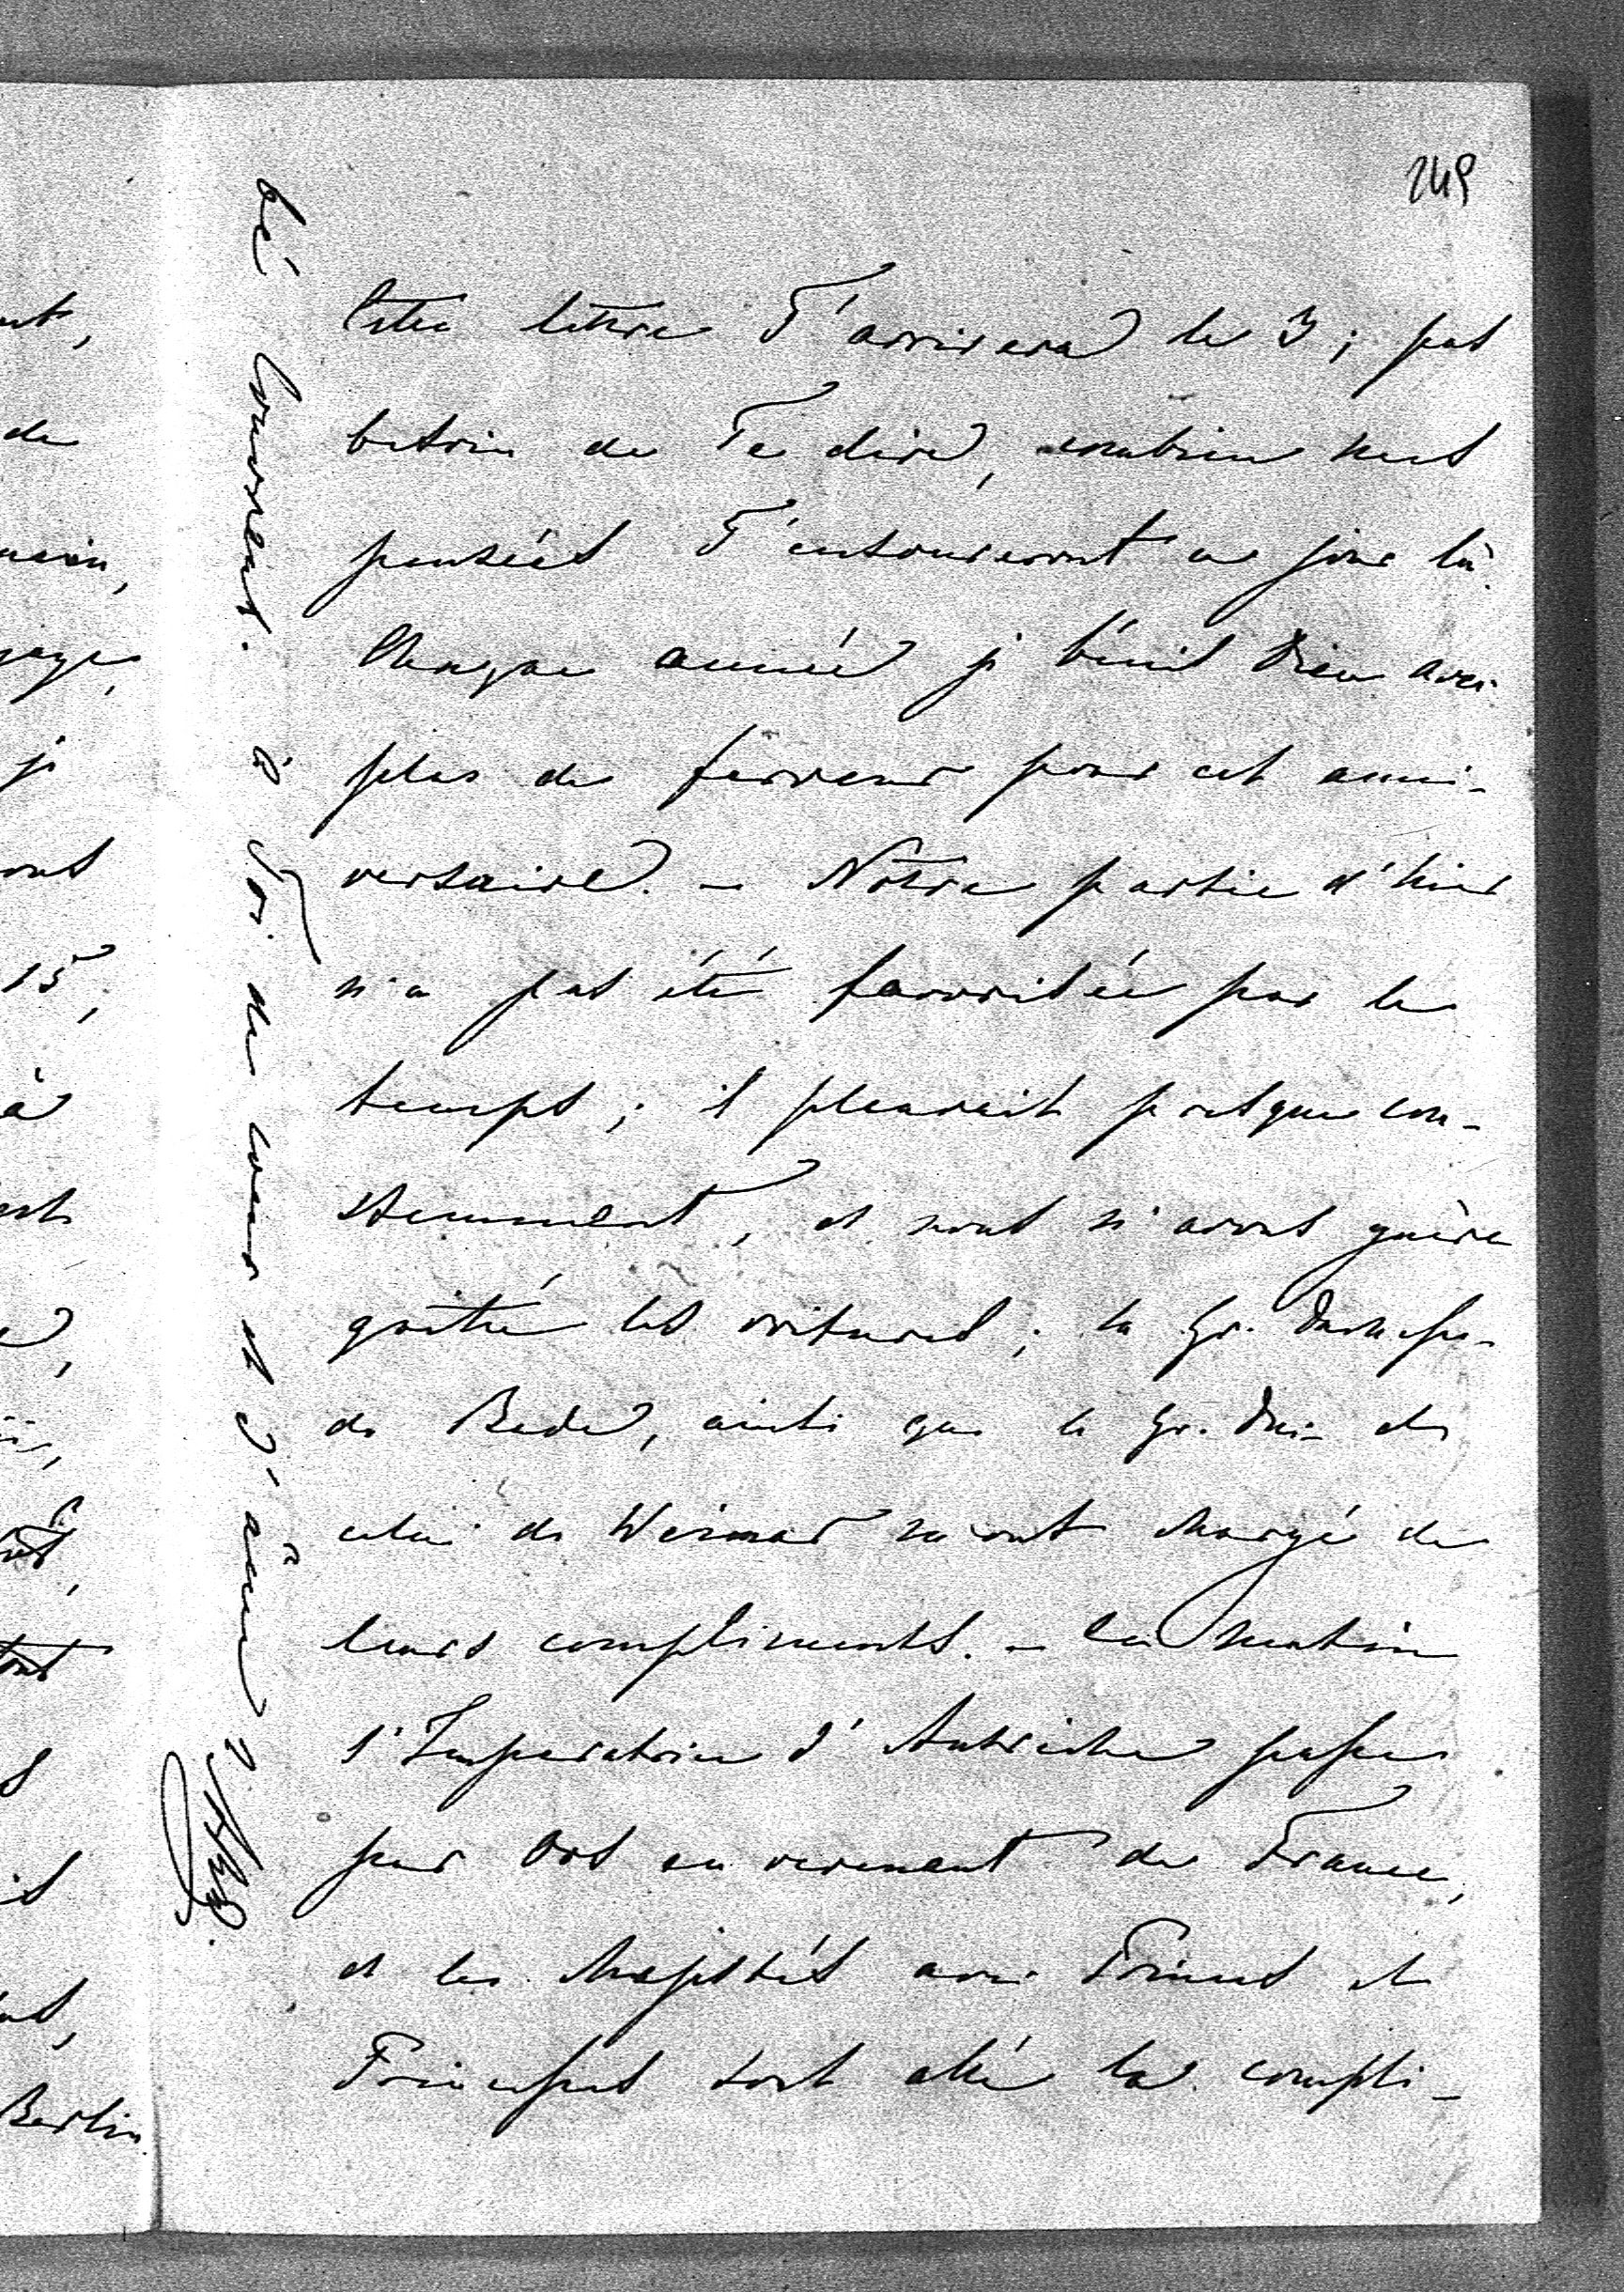 249
Cette lettre T'arrivera le 3; pas
besoin de Te dire, combien mes
pensées T'entoureront ce jour là.
Chaque année je bénis Dieu avec
plus de ferveur pour cet anni-
versaire. – Notre partie d'hier
n'a pas été favorisée par le
temps; il pleuvait presque con-
stamment, et nous n'avons guère
quitté les voitures; la Gr. Duchesse
de Bade, ainsi que le Gr. Duc et
celui de Weimar m'ont chargé de
leurs compliments. – Ce matin
l'Imperatrice d'Autriche passe
par Oos en revenant de France,
et les Majestés avec Princes et
Princesses sont allé la compli-
bé courrent. à Toi de coeur et d'âme
nt,
de
je
15,
à
Berlin